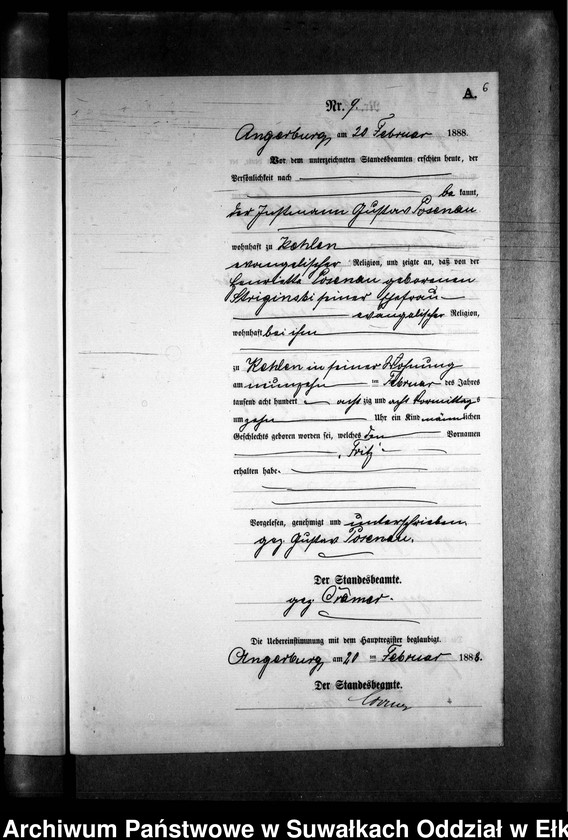 A. 6
Nr. 9.
Angerburg, am 20 Februar 1888.
Vor dem unterzeichneten Standesbeamten erschien heute, der
Persönlichkeit nach
be kannt,
der Instmann Gustav Posenau
wohnhaft zu Kehlen
evangelischer Religion, und zeigte an, daß von der
Henriette Posenau geborenen
Skriginski seiner Ehefrau
evangelischer Religion,
wohnhaft bei ihm
zu Kehlen in seiner Wohnung
am neunzehn ten Februar des Jahres
tausend acht hundert acht zig und acht Vormittag s
um zehn Uhr ein Kind männlichen
Geschlechts geboren worden sei, welches den Vornamen
„Fritz“
erhalten habe.
Vorgelesen, genehmigt und unterschrieben.
gez. Gustav Posenau.
Der Standesbeamte.
gez Cramer.
Die Uebereinstimmung mit dem Hauptregister beglaubigt.
Angerburg, am 20 ten Februar 1888.
Der Standesbeamte.
Archiwum Państwowe w Suwałkach Oddział w Ełk